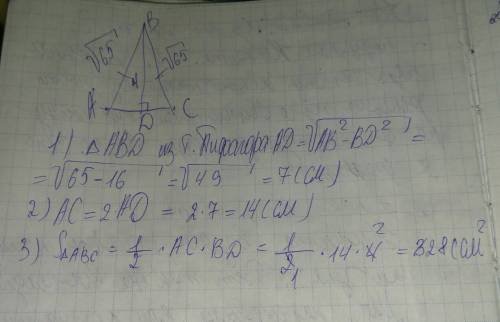 B
√65 √65
4
A D C
1) △ABD из т. Пифагора AD = √AB² - BD² =
= √65 - 16 = √49 = 7 (см)
2) AC = 2AD = 2·7 = 14 (см)
3) S△ABC = 1/2 · AC · BD = 1/2 · 14 · 4 = 28 (см²